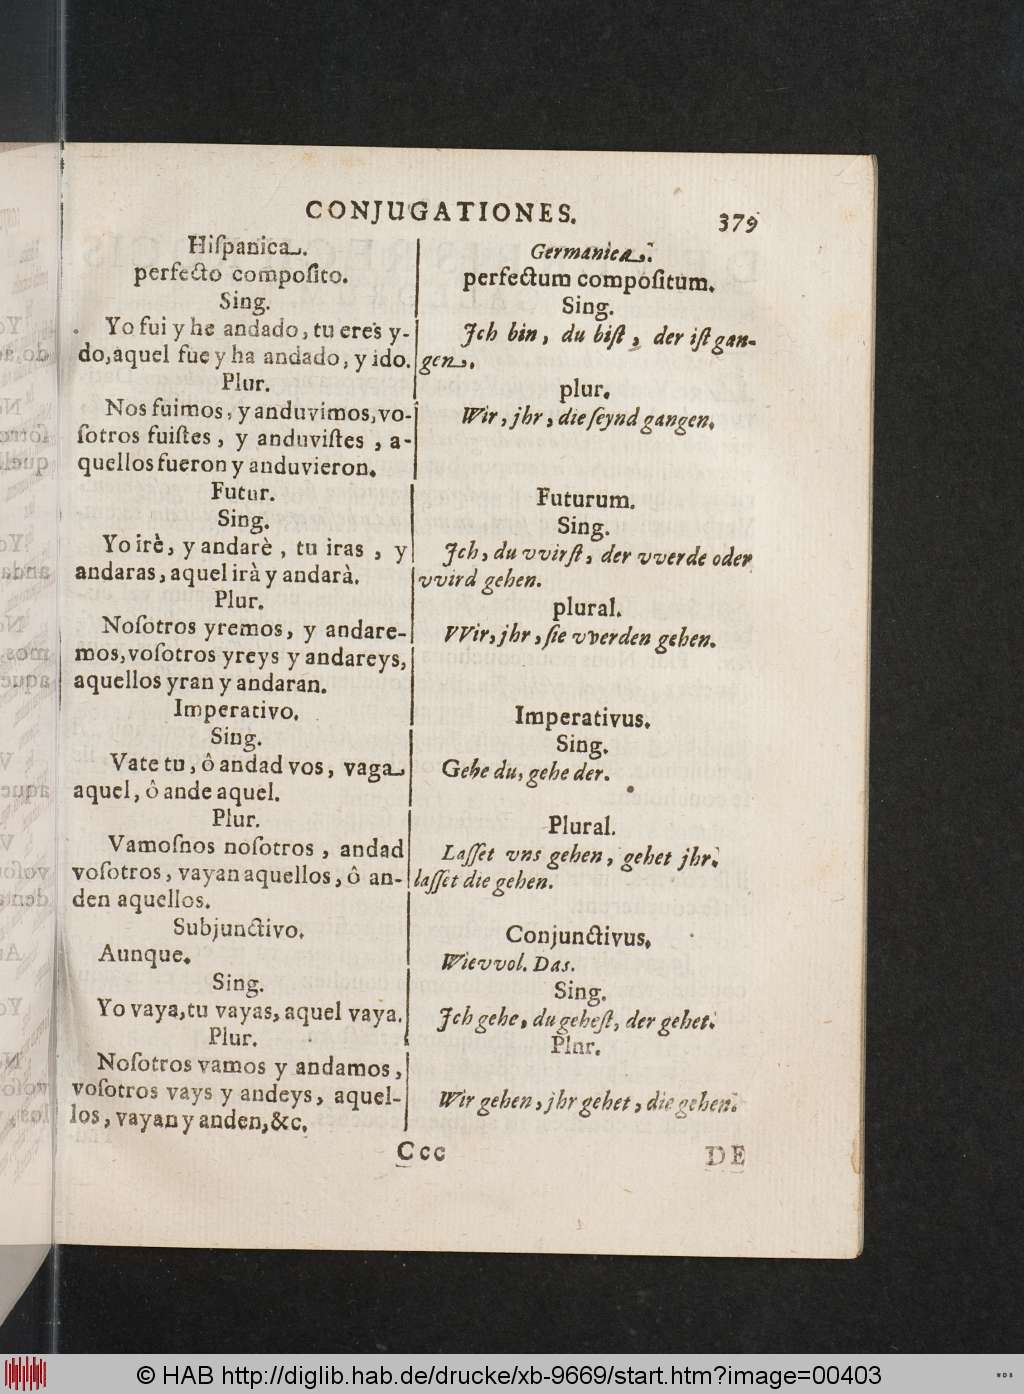 CONJUGATIONES.
379
Hiſpanica.
perfecto compoſito.
Sing.
Yo fui y he andado, tu eres y-
do, aquel fue y ha andado, y ido.
Plur.
Nos fuimos, y anduvimos, vo-
ſotros fuiſtes, y anduviſtes, a-
quellos fueron y anduvieron.
Futur.
Sing.
Yo irè, y andarè, tu iras, y
andaras, aquel irà y andarà.
Plur.
Noſotros yremos, y andare-
mos, voſotros yreys y andareys,
aquellos yran y andaran.
Imperativo.
Sing.
Vate tu, ô andad vos, vaga
aquel, ô ande aquel.
Plur.
Vamoſnos noſotros, andad
voſotros, vayan aquellos, ô an-
den aquellos.
Subjunctivo.
Aunque.
Sing.
Yo vaya, tu vayas, aquel vaya.
Plur.
Noſotros vamos y andamos,
voſotros vays y andeys, aquel-
los, vayan y anden, &c.
Germanica.
perfectum compoſitum.
Sing.
Jch bin, du biſt, der iſt gan-
gen.
plur.
Wir, jhr, die ſeynd gangen.
Futurum.
Sing.
Jch, du vvirſt, der vverde oder
vvird gehen.
plural.
VVir, jhr, ſie vverden gehen.
Imperativus.
Sing.
Gehe du, gehe der.
Plural.
Laſſet vns gehen, gehet jhr.
laſſet die gehen.
Conjunctivus.
Wievvol. Das.
Sing.
Jch gehe, du geheſt, der gehet.
Plur.
Wir gehen, jhr gehet, die gehen.
Ccc
DE
© HAB http://diglib.hab.de/drucke/xb-9669/start.htm?image=00403